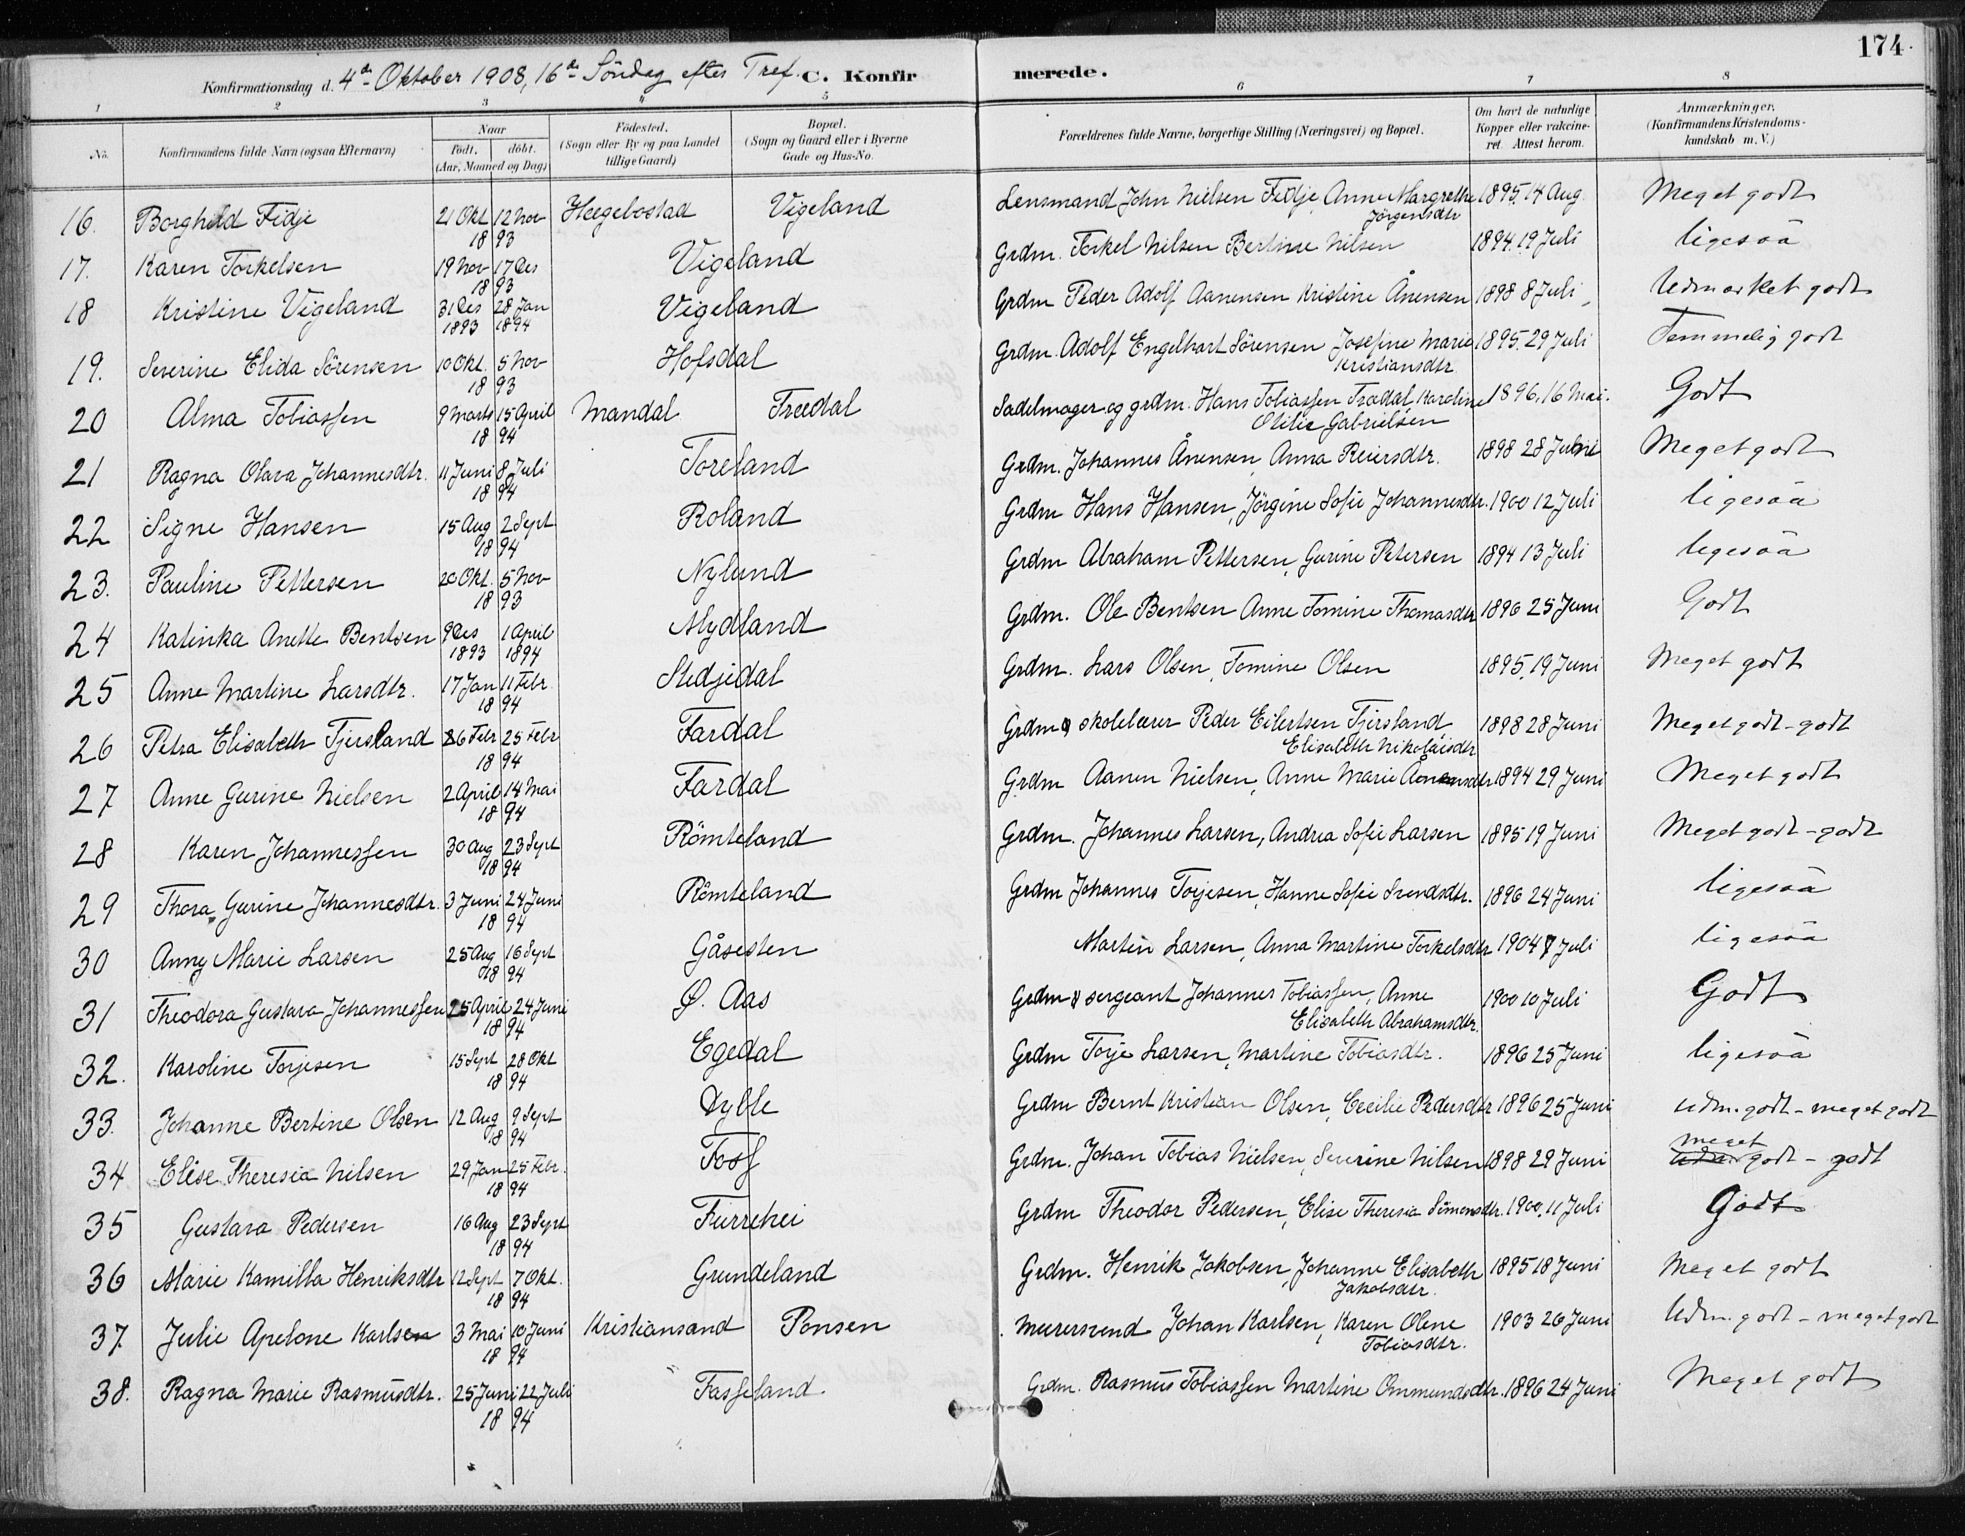 174.
Konfirmationsdag d. 4de Oktober 1908, 16de Söndag efter Tref. C. Konfirmerede.
1 2 3 4 5 6 7 8
No. Konfirmandens fulde Navn (ogsaa Efternavn) Naar Født. døbt. (Aar, Maaned og Dag) Fødested. (Sogn eller By og paa Landet tillige Gaard) Bopæl. (Sogn og Gaard eller i Byerne Gade og Hus-No. Forældrenes fulde Navne, borgerlige Stilling (Næringsvei) og Bopæl. Om havt de naturlige Kopper eller vakcineret. Attest herom. Anmærkninger. (Konfirmandens Kristendomskundskab m. V.)
16. Borghild Fidje 21 Okt 12 Nov 1893 Hægebostad Vigeland Lensmand John Nielsen Fidje, Anne Margrethe Jørgensdtr 1895. 14 Aug. Meget godt
17. Karen Torkelsen 19 Nov 17 Des 1893 Vigeland Grdm. Torkel Nilsen Bertine Nilsen 1894. 19 Juli ligesaa
18 Kristine Vigeland 31 Des 1893 28 Jan 1894 Vigeland Grdm Peder Adolf Aanensen Kristine Ånensen 1898 8 Juli Udmærket godt
19. Severine Elida Sörensen 10 Okt. 5 Nov 1893 Hofsdal Grdm. Adolf Engelhart Sörensen Josefine Marie Kristiansdtr 1895. 29 Juli Temmelig godt
20 Alma Tobiassen 9 Marts 15 April 1894 Mandal Trædal Sadelmager og grdm. Hans Tobiassen Trædal Karoline Otilie Gabrielsen 1896, 16 Mai. Godt
21 Ragna Olava Johannesdtr. 11 Juni 8 Juli 1894 Toreland Grdm. Johannes Ånensen, Anna Reiersdtr. 1898 28 Juni Meget godt
22 Signe Hansen 15 Aug 2 Sept 1894 Roland Grdm Hans Hansen, Jörgine Sofie Johannesdtr. 1900 12 Juli ligesaa
23. Pauline Pettersen 20 Okt. 5 Nov 1893 Nylund Grdm Abraham Pettersen, Gurine Petersen 1894 13 Juli ligesaa
24 Katinka Anette Bentsen 9 Des 1893 1 April 1894 Mydland Grdm. Ole Bentsen Anne Tomine Thomasdtr 1896 25 Juni Godt
25 Anne Martine Larsdtr. 17 Jan 11 Febr. 1894 Stedjedal Grdm. Lars Olsen, Tomine Olsen 1895, 19 Juni Meget godt
26 Petra Elisabeth Tjersland 6 Febr 25 Febr 1894 Fardal Grdm & skolelærer Peder Eilertsen Tjersland Elisabeth Nikolaisdtr 1898 28 Juni Meget godt - godt
27 Anne Gurine Nielsen 2 April 14 Mai 1894 Fardal Grdm Aanen Nielsen, Anne Marie Ånensdtr 1894 29 Juni Meget godt
28 Karen Johannessen 30 Aug 23 Sept 1894 Römteland Grdm. Johannes Larsen, Andrea Sofie Larsen 1895 19 Juni Meget godt - godt
29 Thora Gurine Johannesdtr. 3 Juni 24 Juni 1894 Römteland Grdm Johannes Torjesen, Hanne Sofie Svendsdtr. 1896 24 Juni ligesaa
30 Anny Marie Larsen 25 Aug 16 Sept 1894 Gåsesten Martin Larsen, Anna Martine Torkelsdtr 1904 7 Juli ligesaa
31 Theodora Gustava Johannessen 25 April 24 Juni 1894 Ø. Aas Grdm & sergeant Johannes Tobiassen, Anne Elisabeth Abrahamsdtr. 1900 10 Juli Godt
32. Karoline Torjesen 15 Sept 28 Okt 1894 Egedal Grdm Torje Larsen, Martine Tobiasdtr. 1896 25 Juni ligesaa
33. Johanne Bertine Olsen 12 Aug 9 Sept 1894 Dyble Grdm Bernt Kristian Olsen, Cecilie Pedersdtr 1896 25 Juni Udm. godt - meget godt
34 Elise Theresia Nilsen 29 Jan 25 Febr. 1894 Foss Grdm. Johan Tobias Nielsen, Severine Nilsen 1898 29 Juni meget godt - godt
35 Gustava Pedersen 16 Aug 23 Sept 1894 Furrehei Grdm Theodor Pedersen, Elise Theresia Simonsdtr. 1900, 11 Juli Godt
36 Marie Kamilla Henriksdtr 12 Sept 7 Okt. 1894 Grundeland Grdm. Henrik Jakobsen, Johanne Elisabeth Jakobsdtr. 1895 18 Juni Meget godt
37. Julie Apelone Karlsen 3 Mai 10 Juni 1894 Kristiansand Ponsen Murersvend Johan Karlsen, Karen Olene Tobiasdtr. 1903 26 Juni Udm. godt - meget godt
38. Ragna Marie Rasmusdtr. 25 Juni 22 Juli 1894 Fasseland. Grdm. Rasmus Tobiassen Martine Ommundsdtr. 1896 24 Juni Meget godt